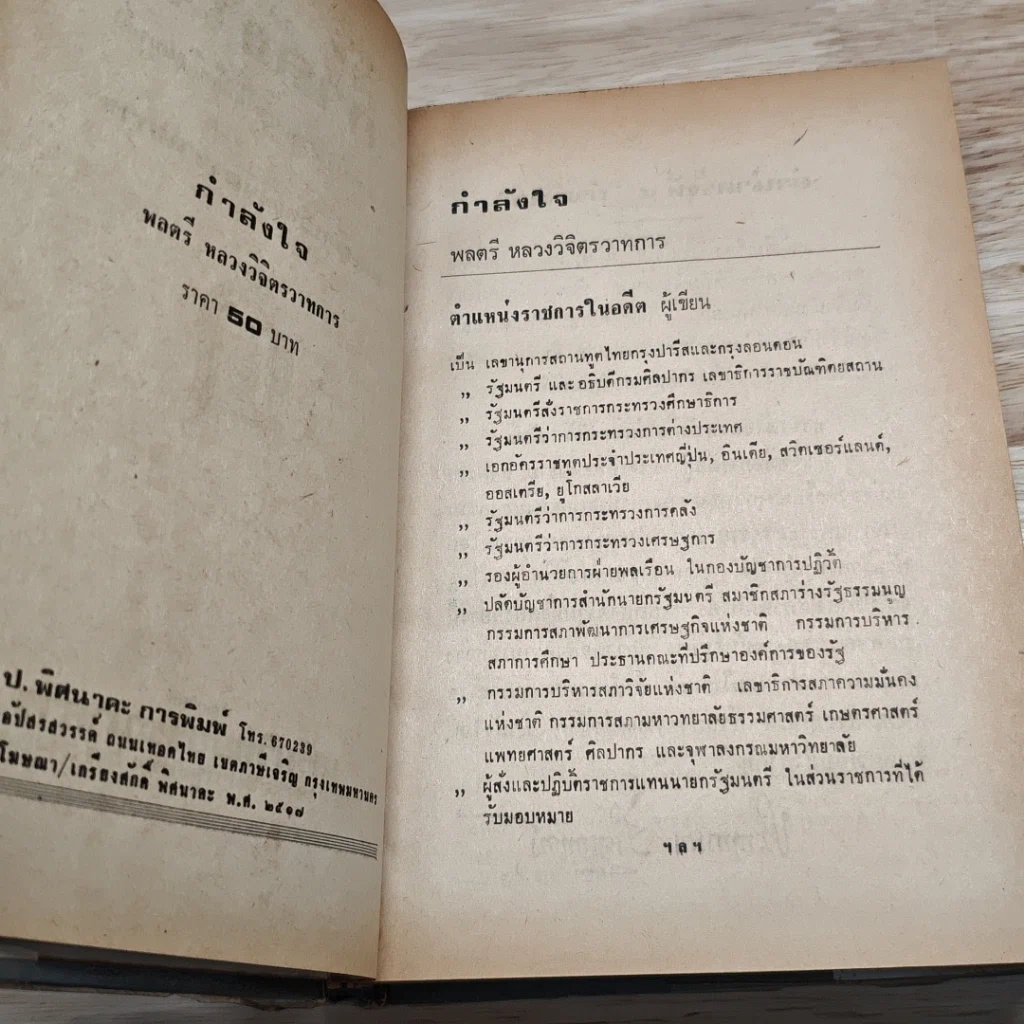 กำลังใจ
พลตรี หลวงวิจิตรวาทการ
ราคา 50 บาท
ป. พิศนาคะ การพิมพ์ โทร. 670239
ถนนเทอดไทย เขตภาษีเจริญ กรุงเทพมหานคร
โฆษณา/เกรียงศักดิ์ พิศนาคะ พ.ศ. ๒๕๑๗
กำลังใจ
พลตรี หลวงวิจิตรวาทการ
ตำแหน่งราชการในอดีต ผู้เขียน
เป็น เลขานุการสถานทูตไทยกรุงปารีสและกรุงลอนดอน
,, รัฐมนตรี และอธิบดีกรมศิลปากร เลขาธิการราชบัณฑิตยสถาน
,, รัฐมนตรีสั่งราชการกระทรวงศึกษาธิการ
,, รัฐมนตรีว่าการกระทรวงการต่างประเทศ
,, เอกอัครราชทูตประจำประเทศญี่ปุ่น, อินเดีย, สวิตเซอร์แลนด์,
ออสเตรีย, ยูโกสลาเวีย
,, รัฐมนตรีว่าการกระทรวงการคลัง
,, รัฐมนตรีว่าการกระทรวงเศรษฐการ
,, รองผู้อำนวยการฝ่ายพลเรือน ในกองบัญชาการปฏิวัติ
,, ปลัดบัญชาการสำนักนายกรัฐมนตรี สมาชิกสภาร่างรัฐธรรมนูญ
กรรมการสภาพัฒนาการเศรษฐกิจแห่งชาติ กรรมการบริหาร
สภาการศึกษา ประธานคณะที่ปรึกษาองค์การของรัฐ
,, กรรมการบริหารสภาวิจัยแห่งชาติ เลขาธิการสภาความมั่นคง
แห่งชาติ กรรมการสภามหาวิทยาลัยธรรมศาสตร์ เกษตรศาสตร์
แพทยศาสตร์ ศิลปากร และจุฬาลงกรณมหาวิทยาลัย
,, ผู้สั่งและปฏิบัติราชการแทนนายกรัฐมนตรี ในส่วนราชการที่ได้
รับมอบหมาย
ฯลฯ